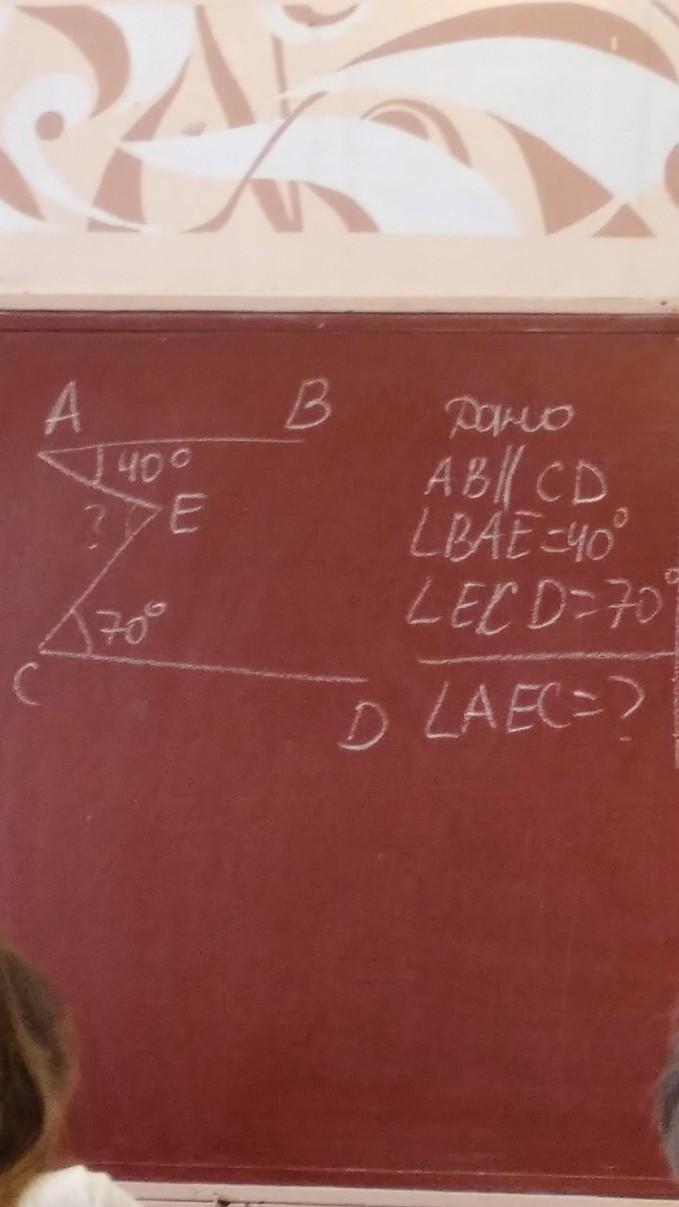 A B
40°
? E
70°
C
D
Дано
AB∥CD
∠BAE=40°
∠ECD=70°
∠AEC=?